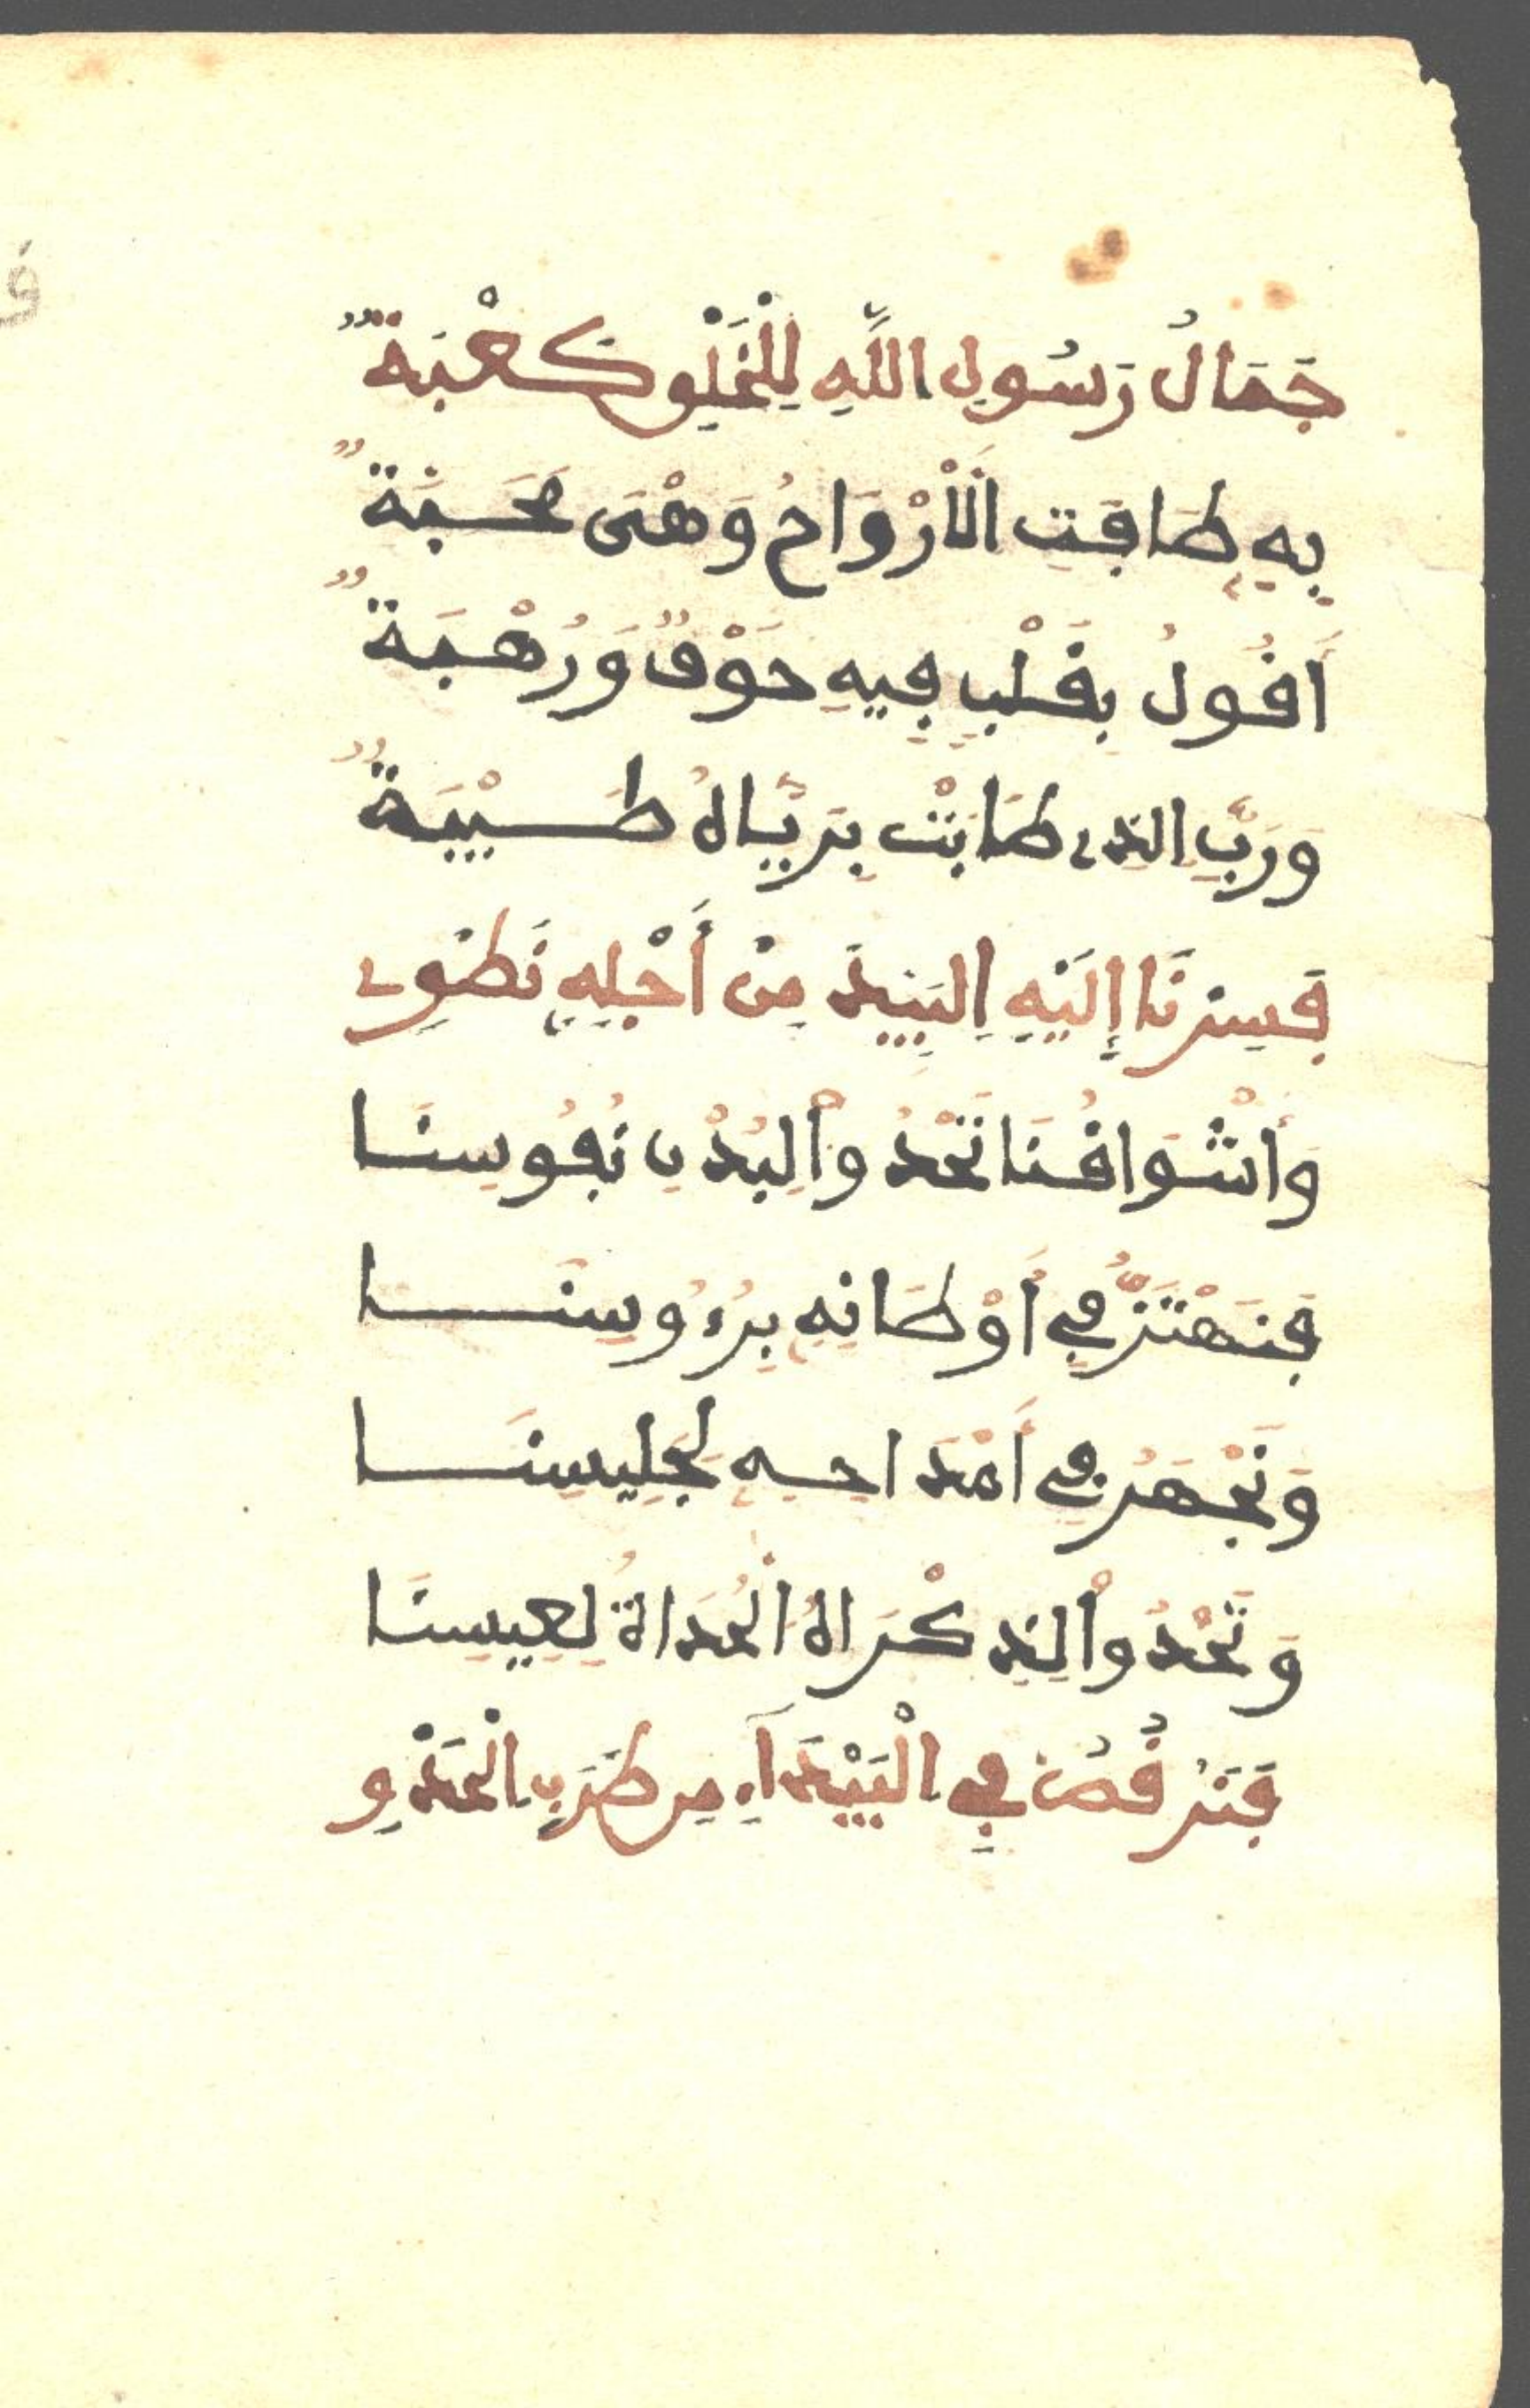 جَمَالُ رَسُولِ اللَّهِ لِلْخَلْقِ كَعْبَةٌ
بِهِ طَافَتِ الْأَرْوَاحُ وَهْىَ مُحِبَّةٌ
أَقُولُ بِقَلْبٍ فِيهِ خَوْفٌ وَرُهْبَةٌ
وَرَبِّ الذِى طَابَتْ بِرَيَّاهُ طَيْبَةٌ
فَسِرْنَا إِلَيْهِ الْبِيدَ مِنْ أَجْلِهِ نَطْوِى
وَأَشْوَاقُنَا تَحْدُو الْبُدْنِ نُفُوسِنَا
فَنَهْتَزُّ فِي أَوْطَانِهِ بِرُءُوسِنَا
وَنَجْهَرُ فِي أَمْدَاحِهِ لِجَلِيسِنَا
وَتَحْدُو الذِكْرَاهُ الْحُدَاةُ لِعِيسِنَا
فَتَرْقُصُ فِي الْبَيْدَآءِ مِن طَرَبِ الْحَدْوِ